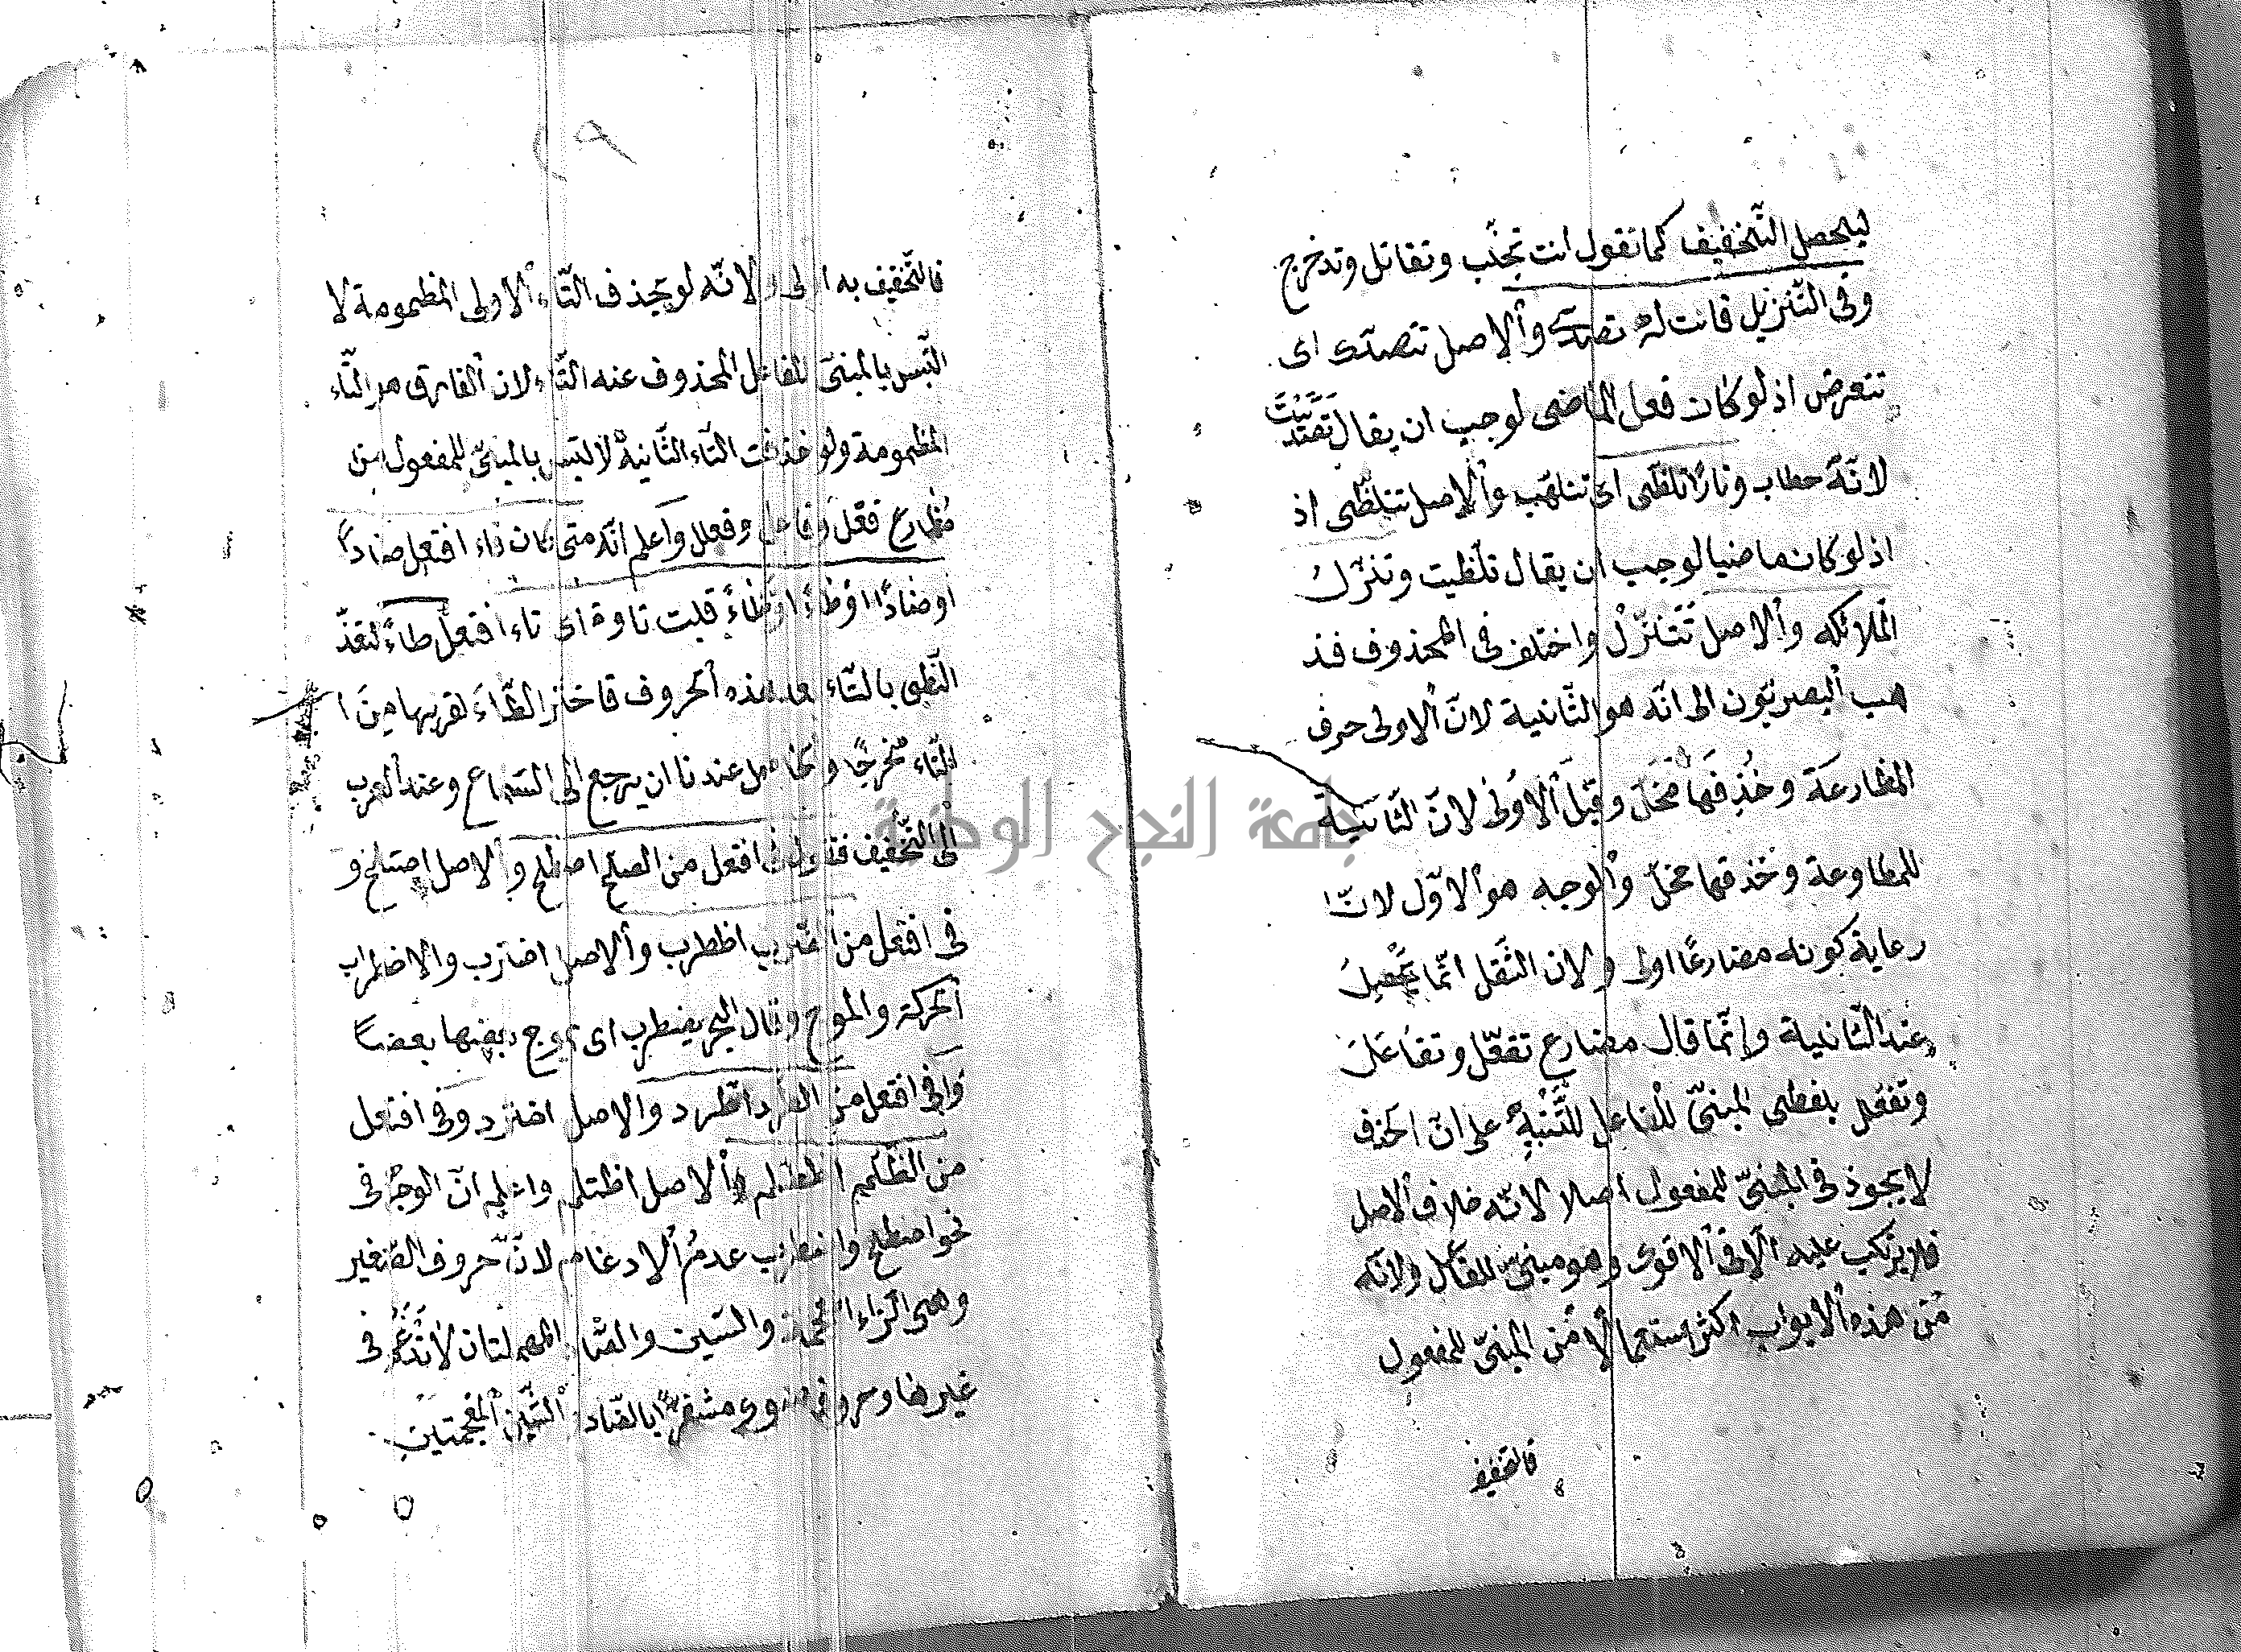 ليحصل التّخفيف كما تقول انت تجنّب وتقاتل وتدخرج
وفى التّنزيل فانت له تصدّى وألاصل تتصدّى اى
تتعرض اذ لو كان فعل الماضى لوجب ان يقال تصدّيت
لانّه خطاب ونارًا تلظّى اى تتلهّب وألاصل تتلظّى اذ
اذ لو كان ماضيا لوجب ان يقال تلظّيت وتنزّل
الملائكه وألاصل تتنزّل واختلف فى المحذوف فذ
هب ألبصريّون الى انّه هو الثّانية لانّ ألاولى حرف
المظارعة وحذفها مخلّ وقيل ألاولى لانّ الثّانية
للمطاوعة وحذفها مخلّ وألوجه هو ألاوّل لانّ
رعاية كونه مضارعًا اولى ولان الثّقل انّما يحصل
عند الثّانية وإنّما قال مضارع تفعّل وتفاعل
وتفعلل بلفظى المبنىّ للفاعل للتّنبيه على انّ الحذف
لا يجوز فى المبنىّ للمفعول اصلا لانّه خلاف ألاصل
فلا يرتكب عليه ألا فى ألاقوى وهو مبنىّ للفاعل ولانّه
من هذه ألابواب اكثر استعمالا من المبنىّ للمفعول
فالتخفيف
جامعة النجاح الوطنية
٢٩
فالتّخفيف به اولى ولانّه لو يحذف التّاء ألاولى المظمومة لا
التّبس بالمبنى للفاعل المحذوف عنه التّاء لان ألفارق هو التّاء
المظمومة ولو حذفت التّاء الثّانية لالتبس بالمبنىّ للمفعول من
مظارع فعّل وفاعل وفعلل واعلم انّه متى كان فاء افتعل صادًا
اوضادًا اوطاءً اوظاءً قلبت تاوه اى تاء افتعل طاءً لتعذّ
النّطق بالتّاء بعد هذه ألحروف فاختر الطّاء لقربها من ا
لتّاء مخرجًا والحاصل عندنا ان يرجع الى السّماع وعند ألعرب
الى التّخفيف فتقول فى افتعل من الصلح اصطلح وألاصل اصتلح و
فى افتعل من الضّرب اظطرب وألاصل اضترب والاضطراب
ألحركة والموج وتقال البحر يضطرب اى يموج بعضها بعضًا
وفى افتعل من الطّرد اطّرد والاصل اطترد وفى افتعل
من الظّلم اظطلم وألاصل اظتلم واعلم انّ الوجه فى
نحو اصطلح واضطرب عدم ألادغام لانّ حروف الصّغير
وهى الزّاء المعجمة والسّين والصّاد المهملتان لا تدغم فى
غيرها وحروف ضوى مشفر ... بالضّاد والشّين المعجمتين